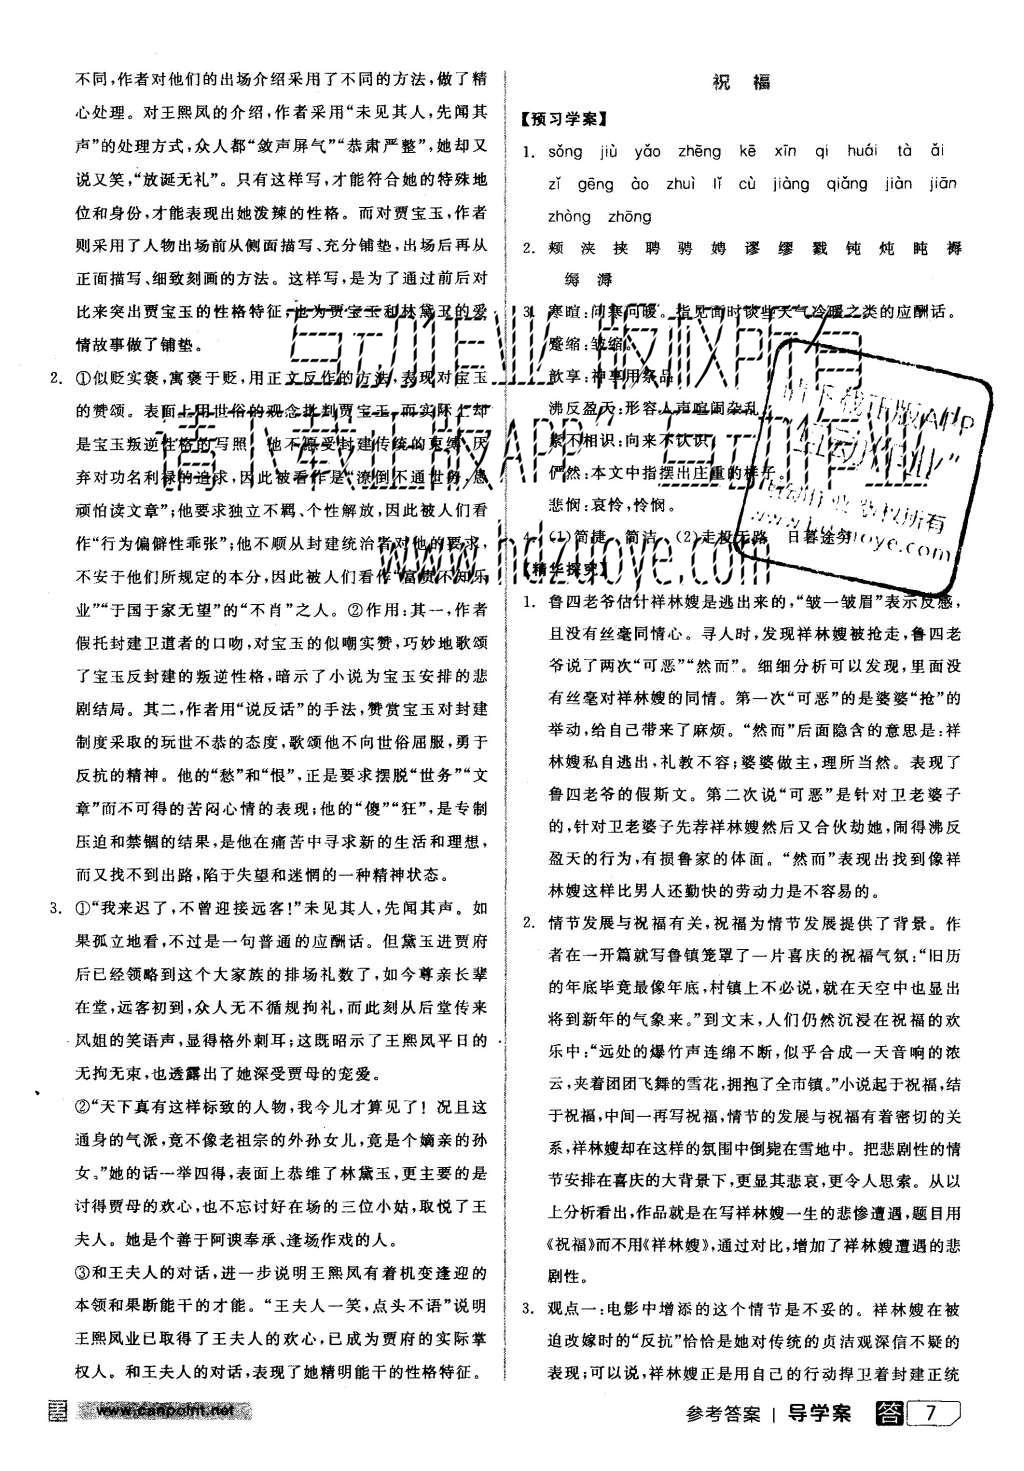 不同,作者对他们的出场介绍采用了不同的方法,做了精
心处理。对王熙凤的介绍,作者采用“未见其人,先闻其
声”的处理方式,众人都“敛声屏气”“恭肃严整”,她却又
说又笑,“放诞无礼”。只有这样写,才能符合她的特殊地
位和身份,才能表现出她泼辣的性格。而对贾宝玉,作者
则采用了人物出场前从侧面描写、充分铺垫,出场后再从
正面描写、细致刻画的方法。这样写,是为了通过前后对
比来突出贾宝玉的性格特征,也为贾宝玉和林黛玉的爱
情故事做了铺垫。
2. ①似贬实褒,寓褒于贬,用正文反作的方法,表现对宝玉
的赞颂。表面上用世俗的观念批判贾宝玉,而实际上却
是宝玉叛逆性格的写照。他不愿受封建传统的束缚,厌
弃对功名利禄的追求,因此被看作是“潦倒不通世务,愚
顽怕读文章”;他要求独立不羁、个性解放,因此被人们看
作“行为偏僻性乖张”;他不顾封建统治者对他的要求,
不安于他们所规定的本分,因此被人们看作“富贵不知乐
业”“于国于家无望”的“不肖”之人。②作用:其一,作者
假托封建卫道者的口吻,对宝玉的似嘲实赞,巧妙地歌颂
了宝玉反封建的叛逆性格,暗示了小说为宝玉安排的悲
剧结局。其二,作者用“说反话”的手法,赞赏宝玉对封建
制度采取的玩世不恭的态度,歌颂他不向世俗屈服,勇于
反抗的精神。他的“愁”和“恨”,正是要求摆脱“世务”“文
章”而不可得的苦闷心情的表现;他的“傻”“狂”,是专制
压迫和禁锢的结果,是他在痛苦中寻求新的生活和理想,
而又找不到出路,陷于失望和迷惘的一种精神状态。
3. ①“我来迟了,不曾迎接远客!”未见其人,先闻其声。如
果孤立地看,不过是一句普通的应酬话。但黛玉进贾府
后已经领略到这个大家族的排场礼数了,如今尊亲长辈
在堂,远客初到,众人无不循规拘礼,而此刻从后堂传来
凤姐的笑语声,显得格外刺耳;这既昭示了王熙凤平日的
无拘无束,也透露出了她深受贾母的宠爱。
②“天下真有这样标致的人物,我今儿才算见了！况且这
通身的气派,竟不像老祖宗的外孙女儿,竟是个嫡亲的孙
女。”她的话一举四得,表面上恭维了林黛玉,更主要的是
讨得贾母的欢心,也不忘讨好在场的三位小姑,取悦了王
夫人。她是个善于阿谀奉承、逢场作戏的人。
③和王夫人的对话,进一步说明王熙凤有着机变逢迎的
本领和果断能干的才能。“王夫人一笑,点头不语”说明
王熙凤业已取得了王夫人的欢心,已成为贾府的实际掌
权人。和王夫人的对话,表现了她精明能干的性格特征。
祝 福
【预习学案】
1. sǒng jiù yǎo zhēng kē xīn qi huái tà ǎi
zǐ gēng ào zhuì lǐ cù jiàng qiǎng jiàn jiān
zhòng zhōng
2. 颊 浃 挟 聘 骋 娉 谬 缪 戮 钝 炖 盹 褥
缛 溽
3. 寒暄:问寒问暖。指见面时谈些天气冷暖之类的应酬话。
蹙缩:皱缩。
歆享:神享用祭品。
沸反盈天:形容人声喧闹杂乱。
素不相识:向来不认识。
俨然:本文中指摆出庄重的样子。
悲悯:哀怜,怜悯。
4. (1)简捷 简洁 (2)走投无路 日暮途穷
【精华探究】
1. 鲁四老爷估计祥林嫂是逃出来的,“皱一皱眉”表示反感,
且没有丝毫同情心。寻人时,发现祥林嫂被抢走,鲁四老
爷说了两次“可恶”“然而”。细细分析可以发现,里面没
有丝毫对祥林嫂的同情。第一次“可恶”的是婆婆“抢”的
举动,给自己带来了麻烦。“然而”后面隐含的意思是:祥
林嫂私自逃出,礼教不容;婆婆做主,理所当然。表现了
鲁四老爷的假斯文。第二次说“可恶”是针对卫老婆子
的,针对卫老婆子先荐祥林嫂然后又合伙劫她,闹得沸反
盈天的行为,有损鲁家的体面。“然而”表现出找到像祥
林嫂这样比男人还勤快的劳动力是不容易的。
2. 情节发展与祝福有关,祝福为情节发展提供了背景。作
者在一开篇就写鲁镇笼罩了一片喜庆的祝福气氛:“旧历
的年底毕竟最像年底,村镇上不必说,就在天空中也显出
将到新年的气象来。”到文末,人们仍然沉浸在祝福的欢
乐中:“远处的爆竹声连绵不断,似乎合成一天音响的浓
云,夹着团团飞舞的雪花,拥抱了全市镇。”小说起于祝福,结
于祝福,中间一再写祝福,情节的发展与祝福有着密切的关
系,祥林嫂却在这样的氛围中倒毙在雪地中。把悲剧性的情
节安排在喜庆的大背景下,更显其悲哀,更令人思索。从以
上分析看出,作品就是在写祥林嫂一生的悲惨遭遇,题目用
《祝福》而不用《祥林嫂》,通过对比,增加了祥林嫂遭遇的悲
剧性。
3. 观点一:电影中增添的这个情节是不妥的。祥林嫂在被
迫改嫁时的“反抗”恰恰是她对传统的贞洁观深信不疑的
表现;可以说,祥林嫂正是用自己的行动捍卫着封建正统
www.canpoint.net
参考答案 | 导学案 答 7
请下载正版APP“互动作业”
www.hdzuoye.com